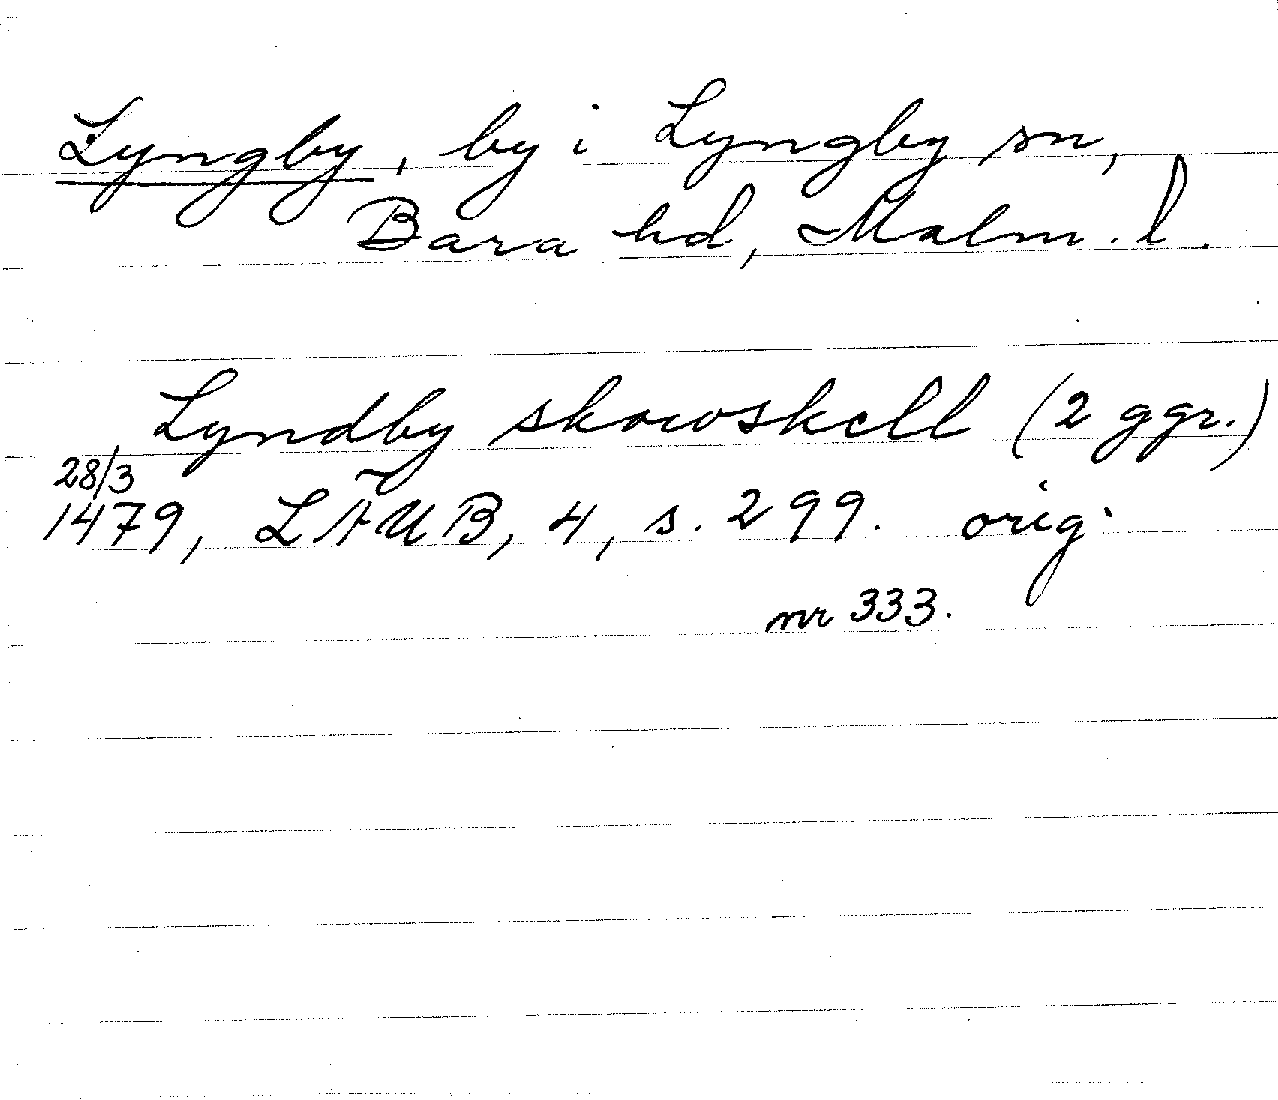 Lyngby, by i Lyngby sn,
Bara hd, Malm. l.
Lyndby skowskell (2 ggr.)
28/3
1479, LÄUB, 4, s. 299. orig.
nr 333.